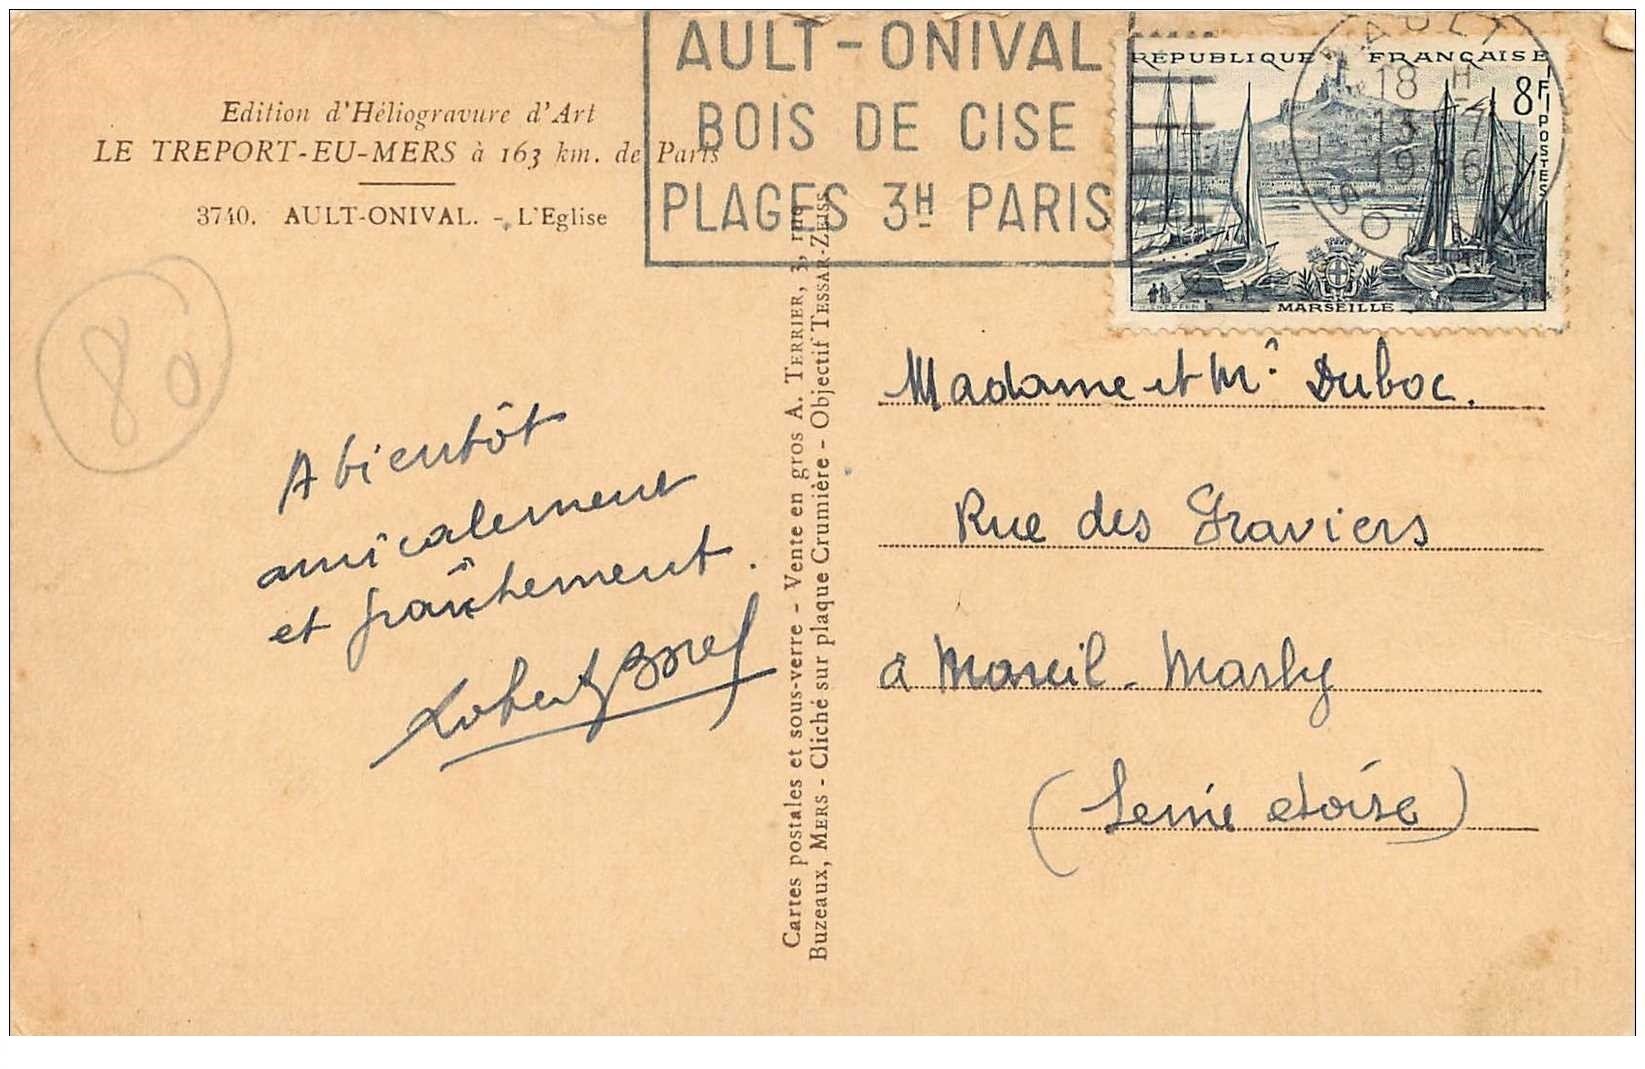 Edition d'Héliogravure d'Art
LE TREPORT-EU-MERS à 163 km. de Paris
3740. AULT-ONIVAL. - L'Eglise
AULT-ONIVAL
BOIS DE CISE
PLAGES 3H PARIS
REPUBLIQUE FRANÇAISE
8F
POSTES
MARSEILLE
AULT
18 H
13 -7
1956
SOMME
80
A bientôt
amicalement
et fraîchement.
Robert Borel
Cartes postales et sous-verre - Vente en gros A. TERRIER, 3, rue
Buzeaux, MERS - Cliché sur plaque Crumière - Objectif TESSAR-ZEISS
Madame et Mr Duboc.
Rue des Graviers
à Mareil-Marly
(Seine et Oise)